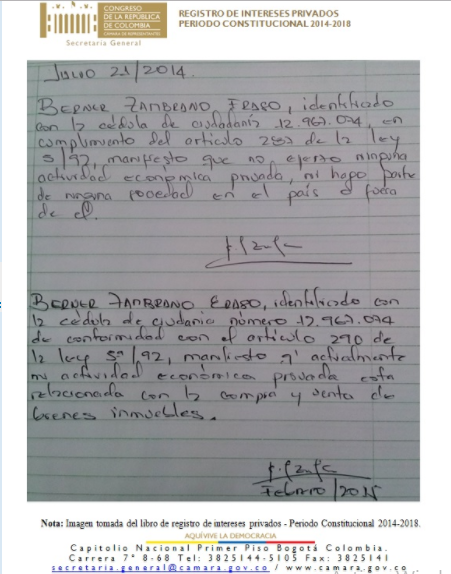 CONGRESO
DE LA REPÚBLICA
DE COLOMBIA
CÁMARA DE REPRESENTANTES
Secretaría General
REGISTRO DE INTERESES PRIVADOS
PERIODO CONSTITUCIONAL 2014-2018
JULIO 21/2014.
BERNER ZAMBRANO ERASO, identificado
con la cédula de ciudadanía 12.967.094, en
cumplimiento del articulo 287 de la ley
5/92, manifiesto que no ejerzo ninguna
actividad económica privada, ni hago parte
de ninguna sociedad en el país o fuera
de el.
BERNER ZAMBRANO ERASO, identificado con
la cédula de ciudadania número 12.967.094
de conformidad con el artículo 290 de
la ley 5ª/92, manifiesto q' actualmente
mi actividad económica privada esta
relacionada con la compra y venta de
bienes inmuebles.
Febrero/2015
Nota: Imagen tomada del libro de registro de intereses privados - Periodo Constitucional 2014-2018.
AQUÍVIVE LA DEMOCRACIA
Capitolio Nacional Primer Piso Bogotá Colombia.
Carrera 7ª 8-68 Tel: 3825144-5105 Fax: 3825141
secretaria.general@camara.gov.co / www.camara.gov.co